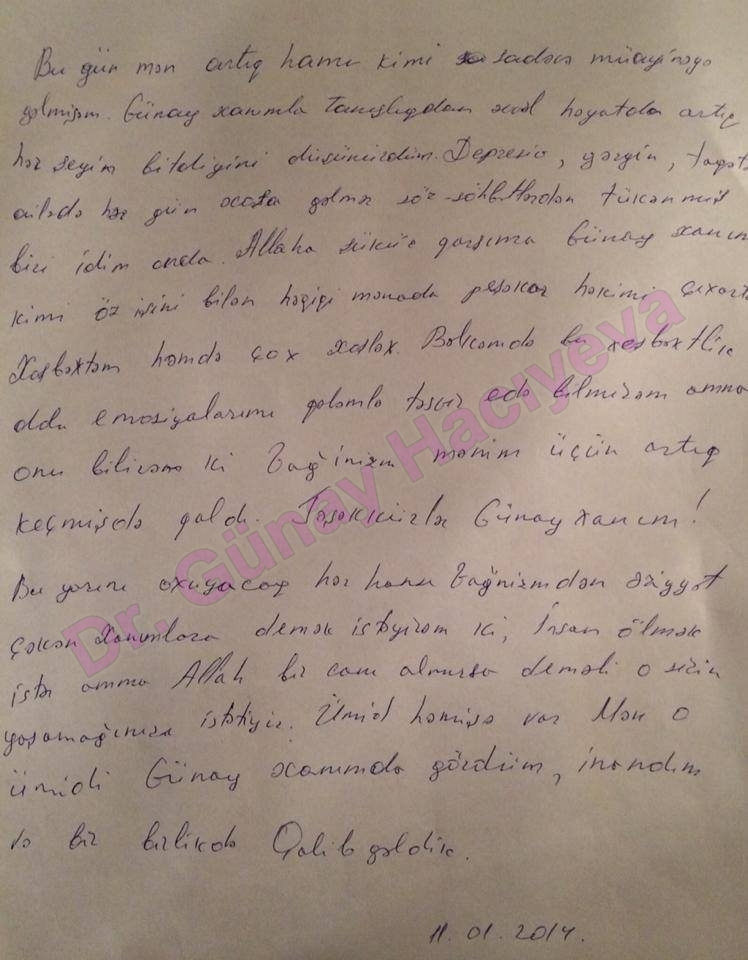 Bu gün mən artıq hamı kimi sadəcə müayinəyə
gəlmişəm. Günay xanımla tanışlıqdan əvvəl həyatda artıq
hər şeyin bitdiyini düşünürdüm. Depressiv, gərgin,
ailədə hər gün ortaya gələn söz-söhbətlərdən tükənmiş
biri idim onda. Allaha şükür qarşıma Günay xanım
kimi öz işini bilən həqiqi mənada peşəkar həkimi çıxartdı
Xoşbəxtəm həmdə çox xoşbəx. Bəlkəmdə bu xoşbəxtlik
dolu emosiyalarımı qələmlə təsvir edə bilmirəm amma
onu bilirəm ki Vağinizm mənim üçün artıq
keçmişdə qaldı. Təşəkkürlər Günay xanım!
Bu yazını oxuyacaq hər hansı Vağnizmdən əziyyət
çəkən Xanımlara demək istəyirəm ki, İnsan ölmək
istər amma Allah bir can almırsa deməli o sizin
yaşamağınızı istəyir. Ümid həmişə var Mən o
ümidi Günay xanımda gördüm, inandım
və biz birlikdə Qalib gəldik.
11.01.2014.
Dr. Günay Hacıyeva